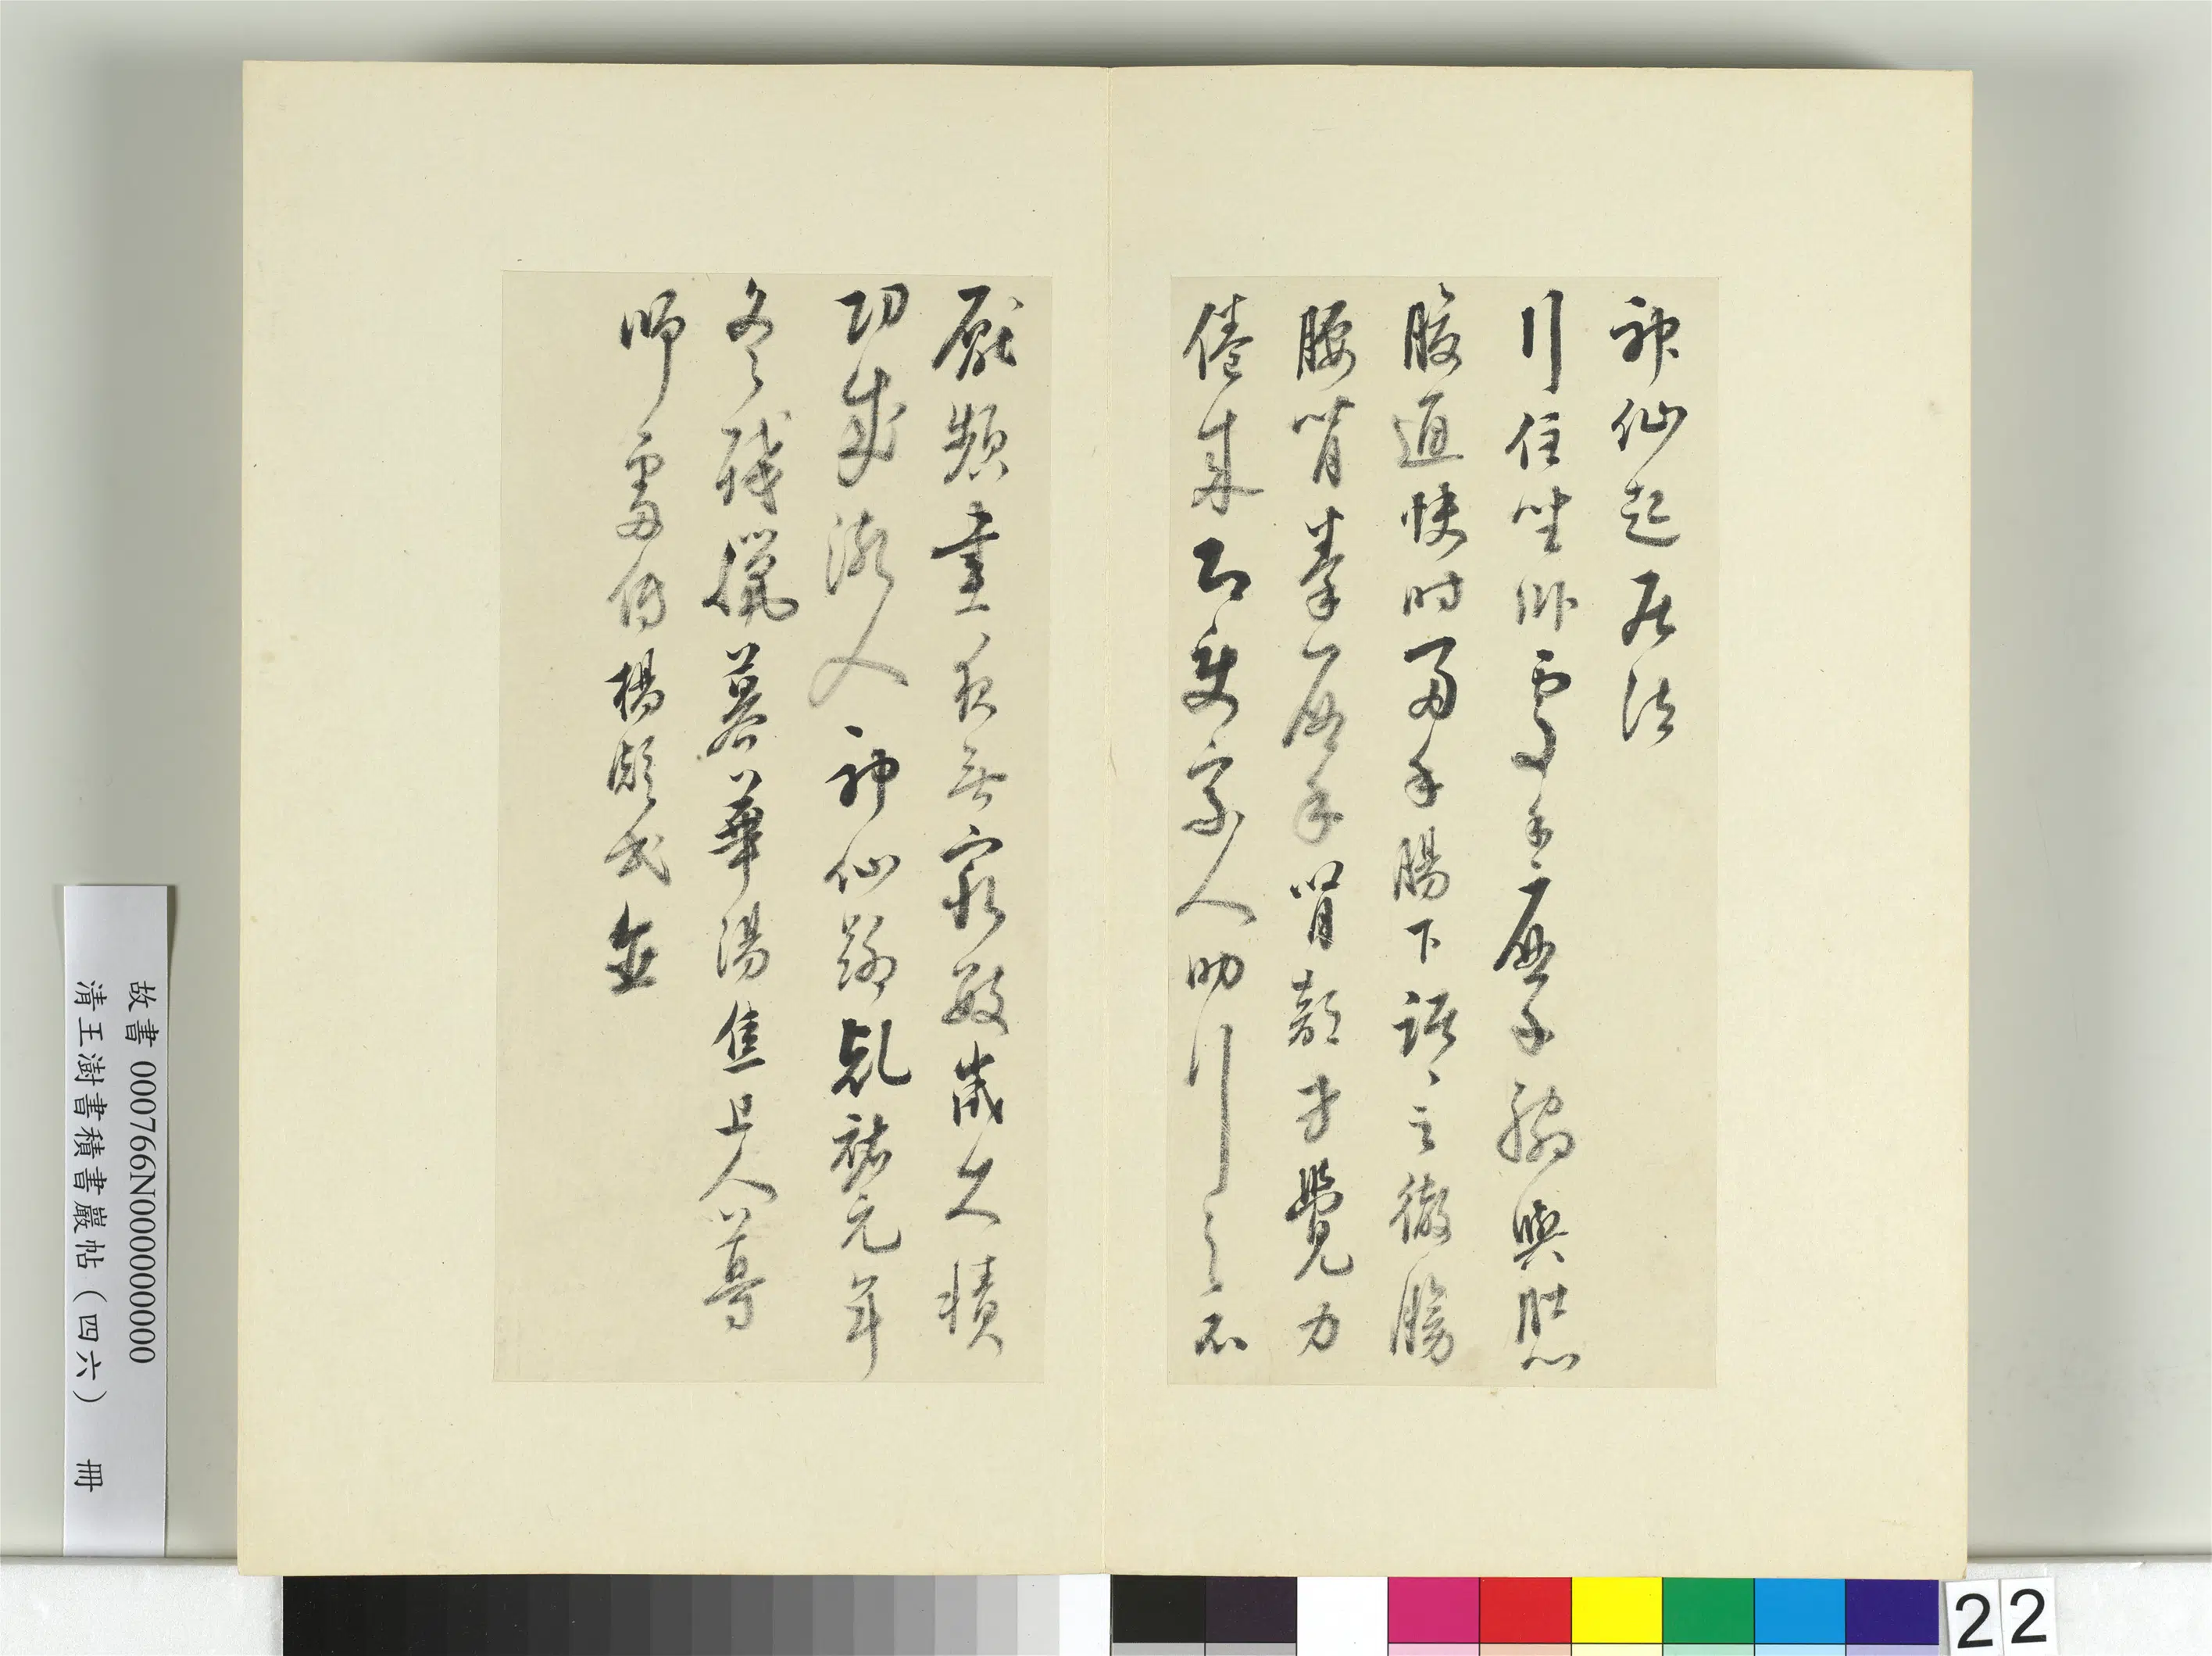 神仙起居法
行住坐臥處手摩脅與肚心
腹通快時兩手腸下踞踞之徹膀
腰背拳摩腎部才覺力
倦來即使家人助行之不
厭頻晝夜無窮數歲久積
功成漸入神仙路乾祐元年
冬殘臘暮華陽焦上人尊
師處傳楊凝式
故書 000766N000000000
清王澍書積書巖帖（四六） 冊
22